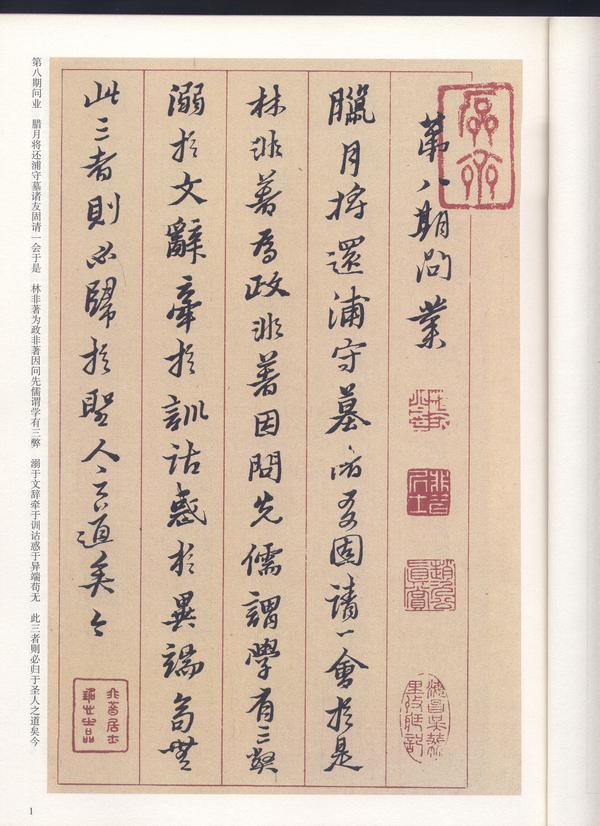 第八期問業
臘月將還浦守墓諸友固請一會於是
林非著為政非著因問先儒謂學有三弊
溺於文辭牽於訓詁惑於異端苟無
此三者則必歸於聖人之道矣今
第八期问业　腊月将还浦守墓诸友固请一会于是　林非著为政非著因问先儒谓学有三弊　溺于文辞牵于训诂惑于异端苟无　此三者则必归于圣人之道矣今
1